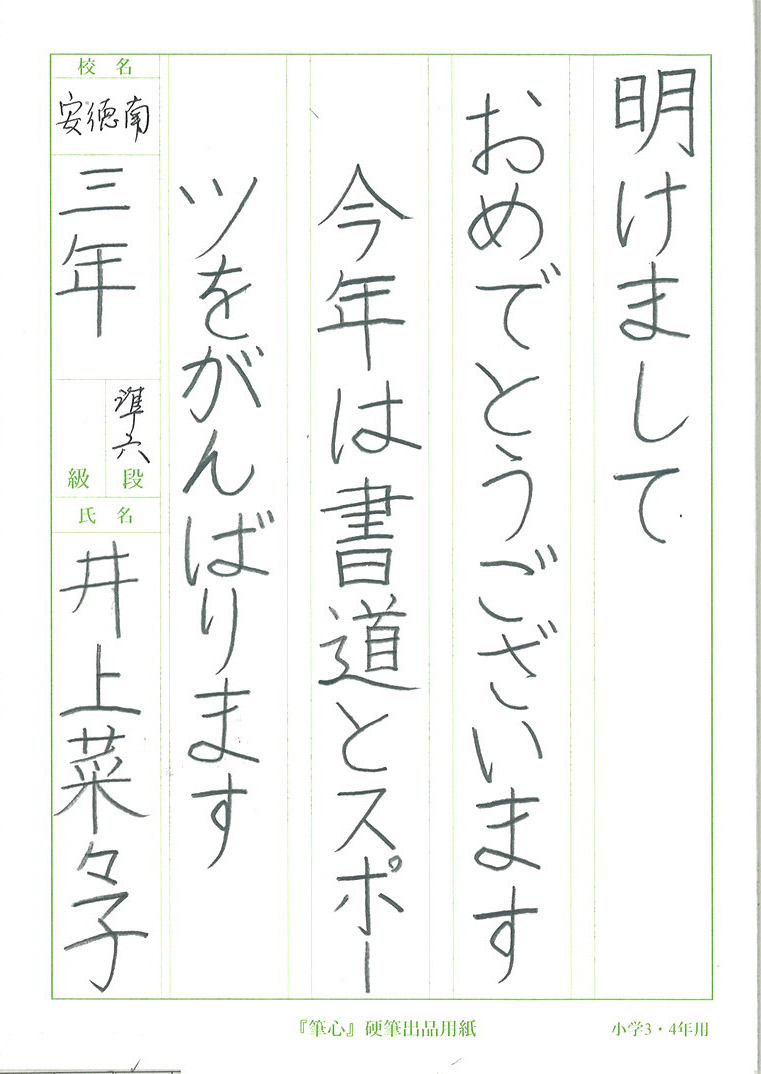 明けまして
おめでとうございます
今年は書道とスポー
ツをがんばります
校名
安徳南
三年
準六
級 段
氏名
井上菜々子
『筆心』硬筆出品用紙
小学3・4年用